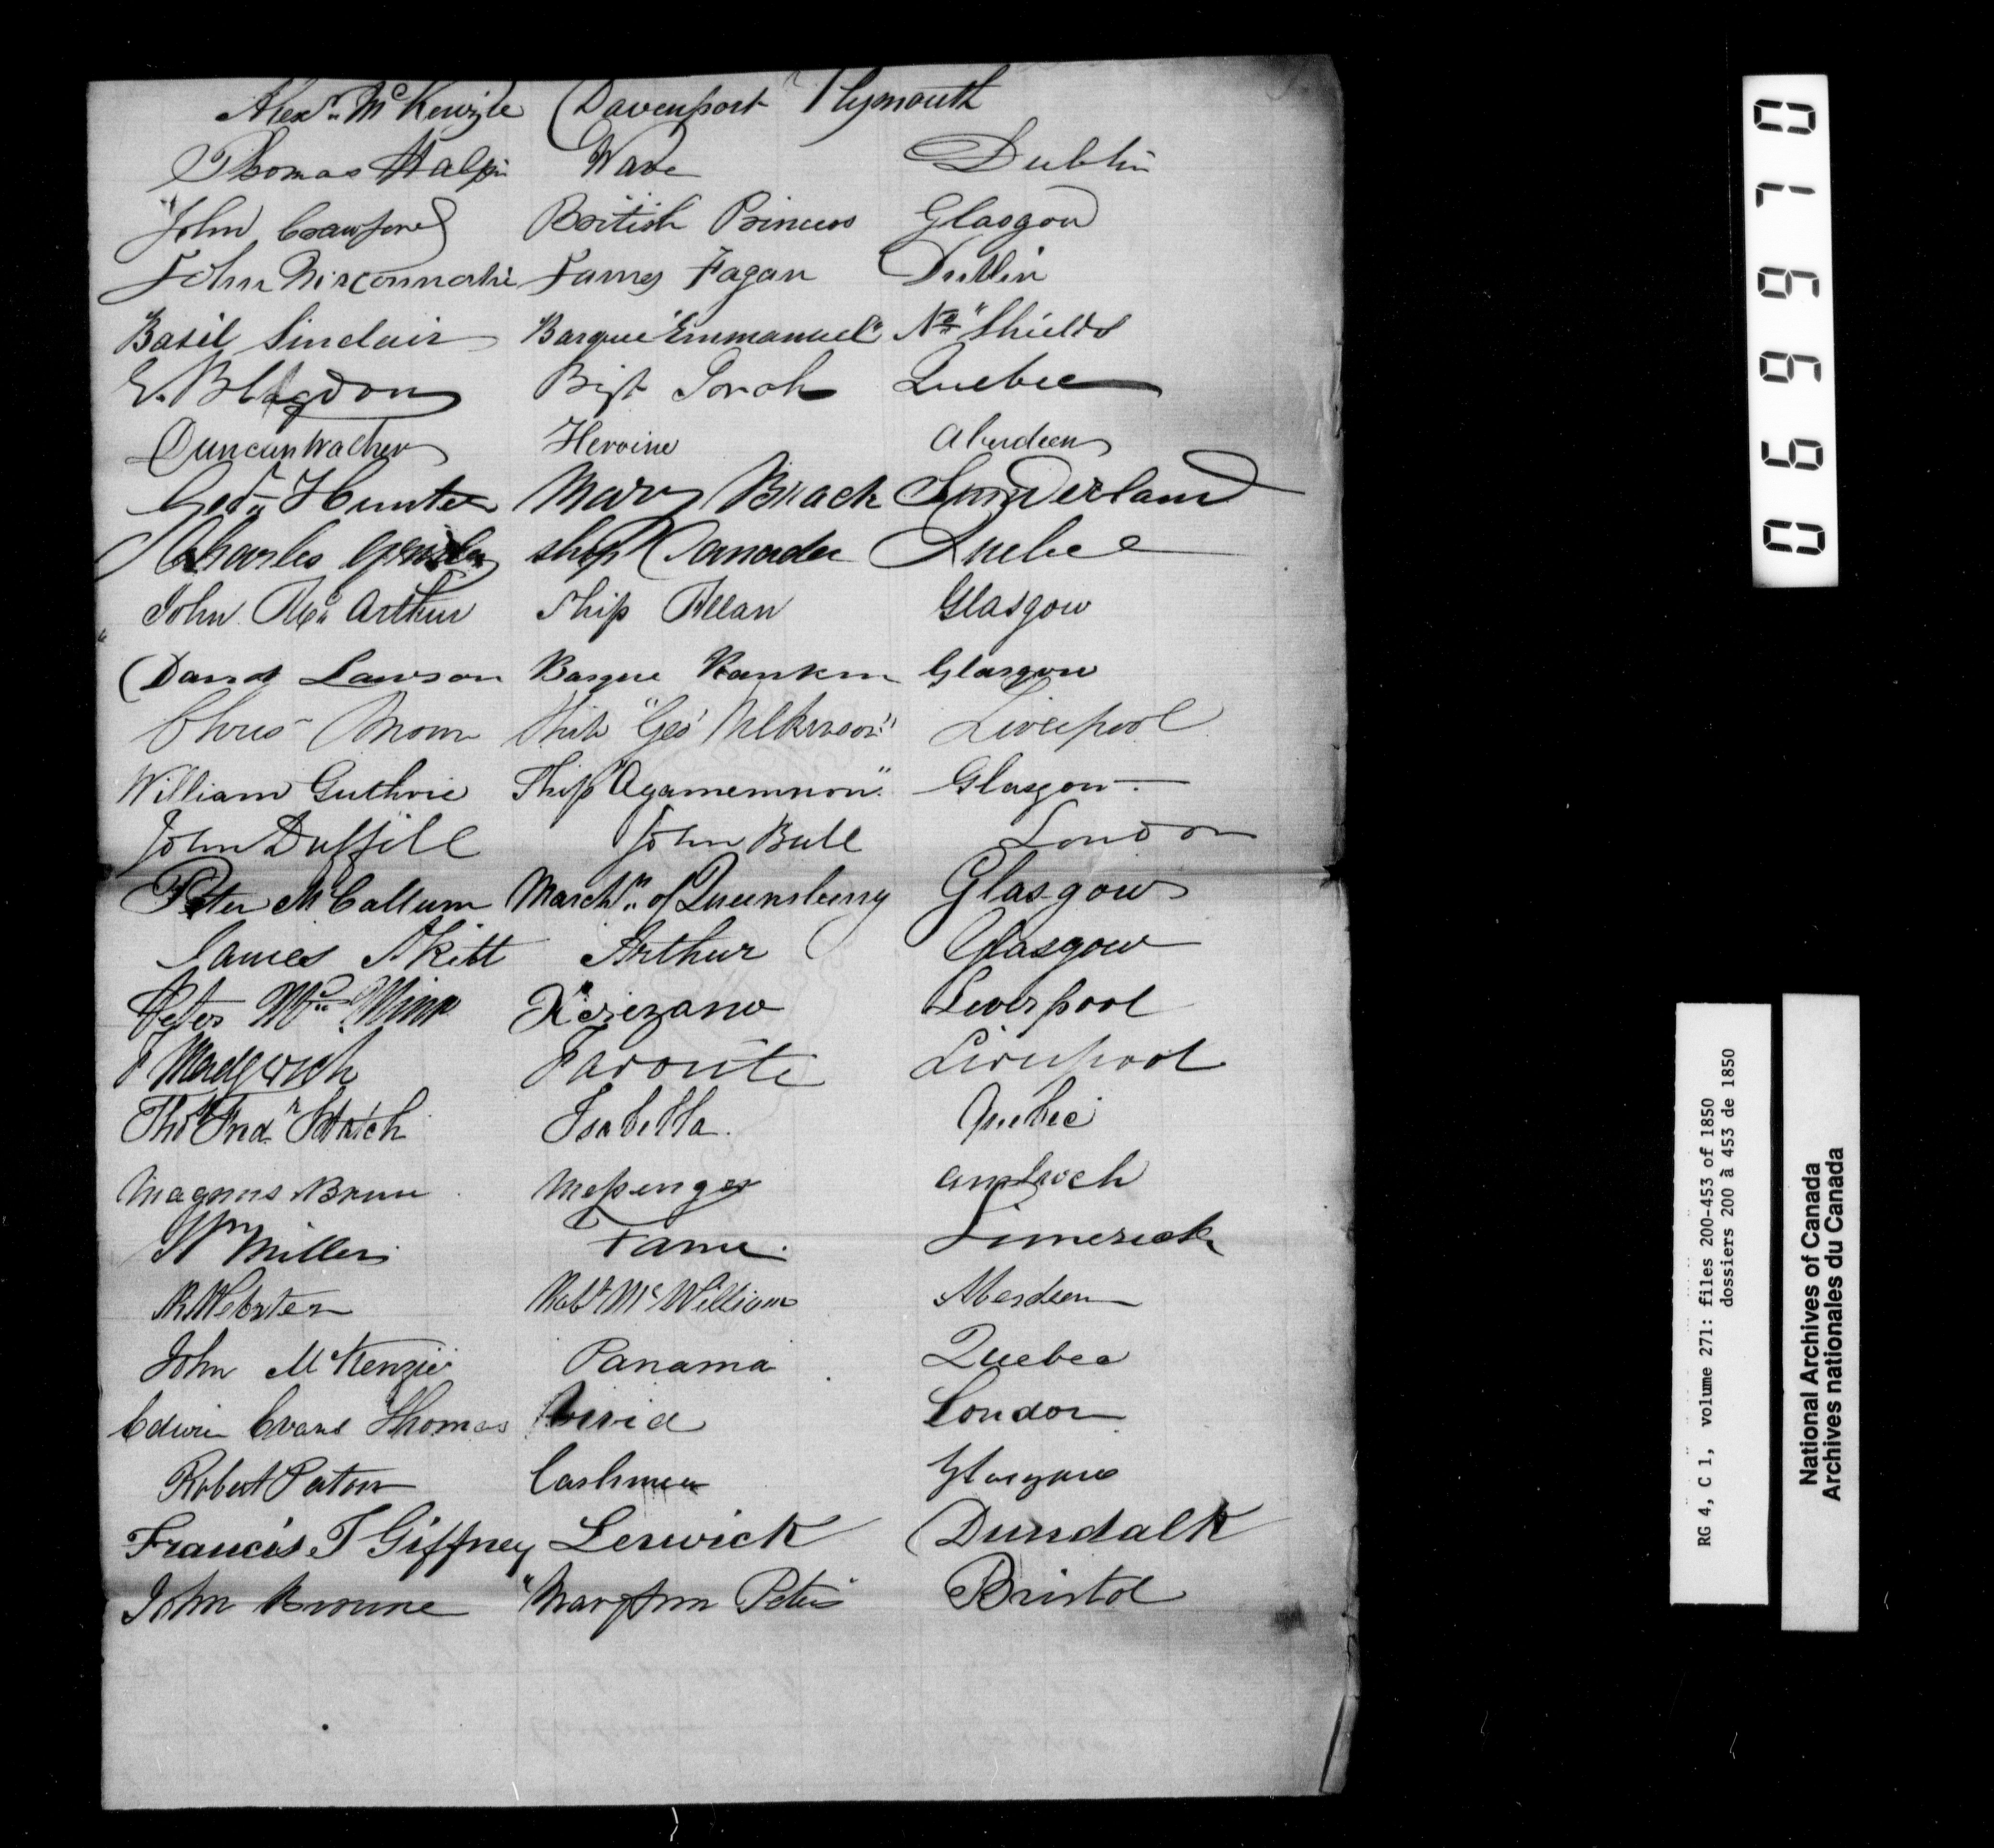 Alexr. McKenzie Davenport Plymouth
Thomas Halpin Wave Dublin
John Crawford British Princess Glasgow
John James Fagan Dublin
Basil Sinclair Barque "Emmanuel" No. Shields
E. Blagdon Bigt Quebec
Duncan Walker Heroine Aberdeen
Geo. Hunter Mary Brack Sunderland
Charles ship Canada Quebec
John McArthur Ship Allan Glasgow
David Lawson Barque Rankin Glasgow
Chris Ship "Geo Wilkinson" Liverpool
William Guthrie Ship "Agamemnon" Glasgow
John Duffill John Bull London
Peter McCallum Marchss. of Queensberry Glasgow
James Skitt Arthur Glasgow
Peter Liverpool
Favourite Liverpool
Thos Fredk Hatch Isabella Quebec
Magnus Brun Messenger
Wm Miller Fame Limerick
R Webster Robt McWilliam Aberdeen
John McKenzie Panama Quebec
Edwin Evans Thomas London
Robert Paton Cashmere Glasgow
Francis T Giffney Lerwick Dundalk
John Browne "Mary Ann Peters Bristol
0 1 6 6 9 0
RG 4, C 1, volume 271: files 200-453 of 1850
dossiers 200 à 453 de 1850
National Archives of Canada
Archives nationales du Canada